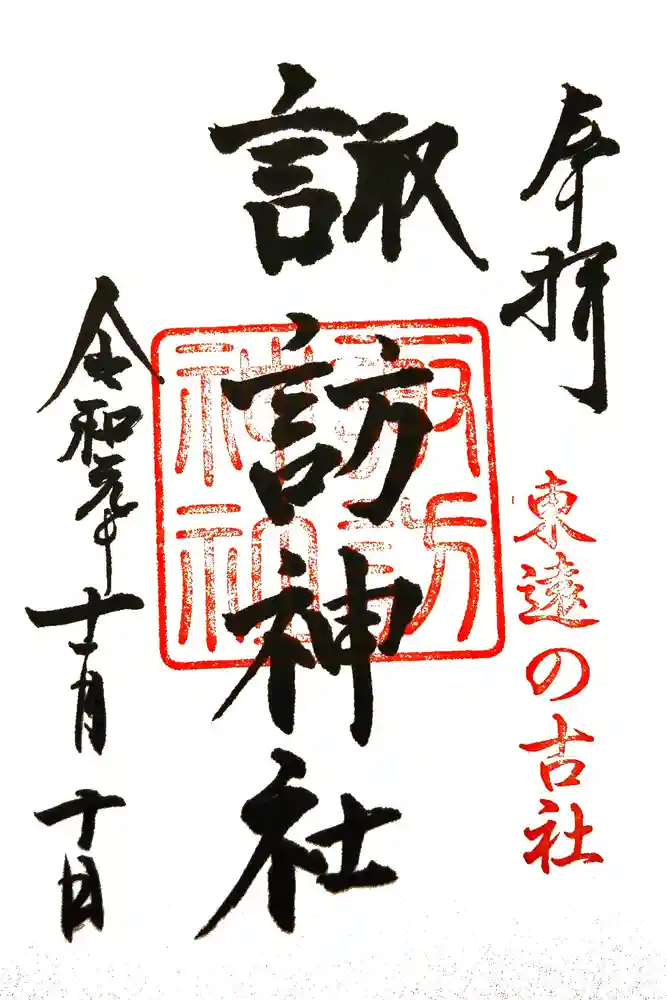 奉拝
東遠の古社
諏訪神社
令和元年十一月十日